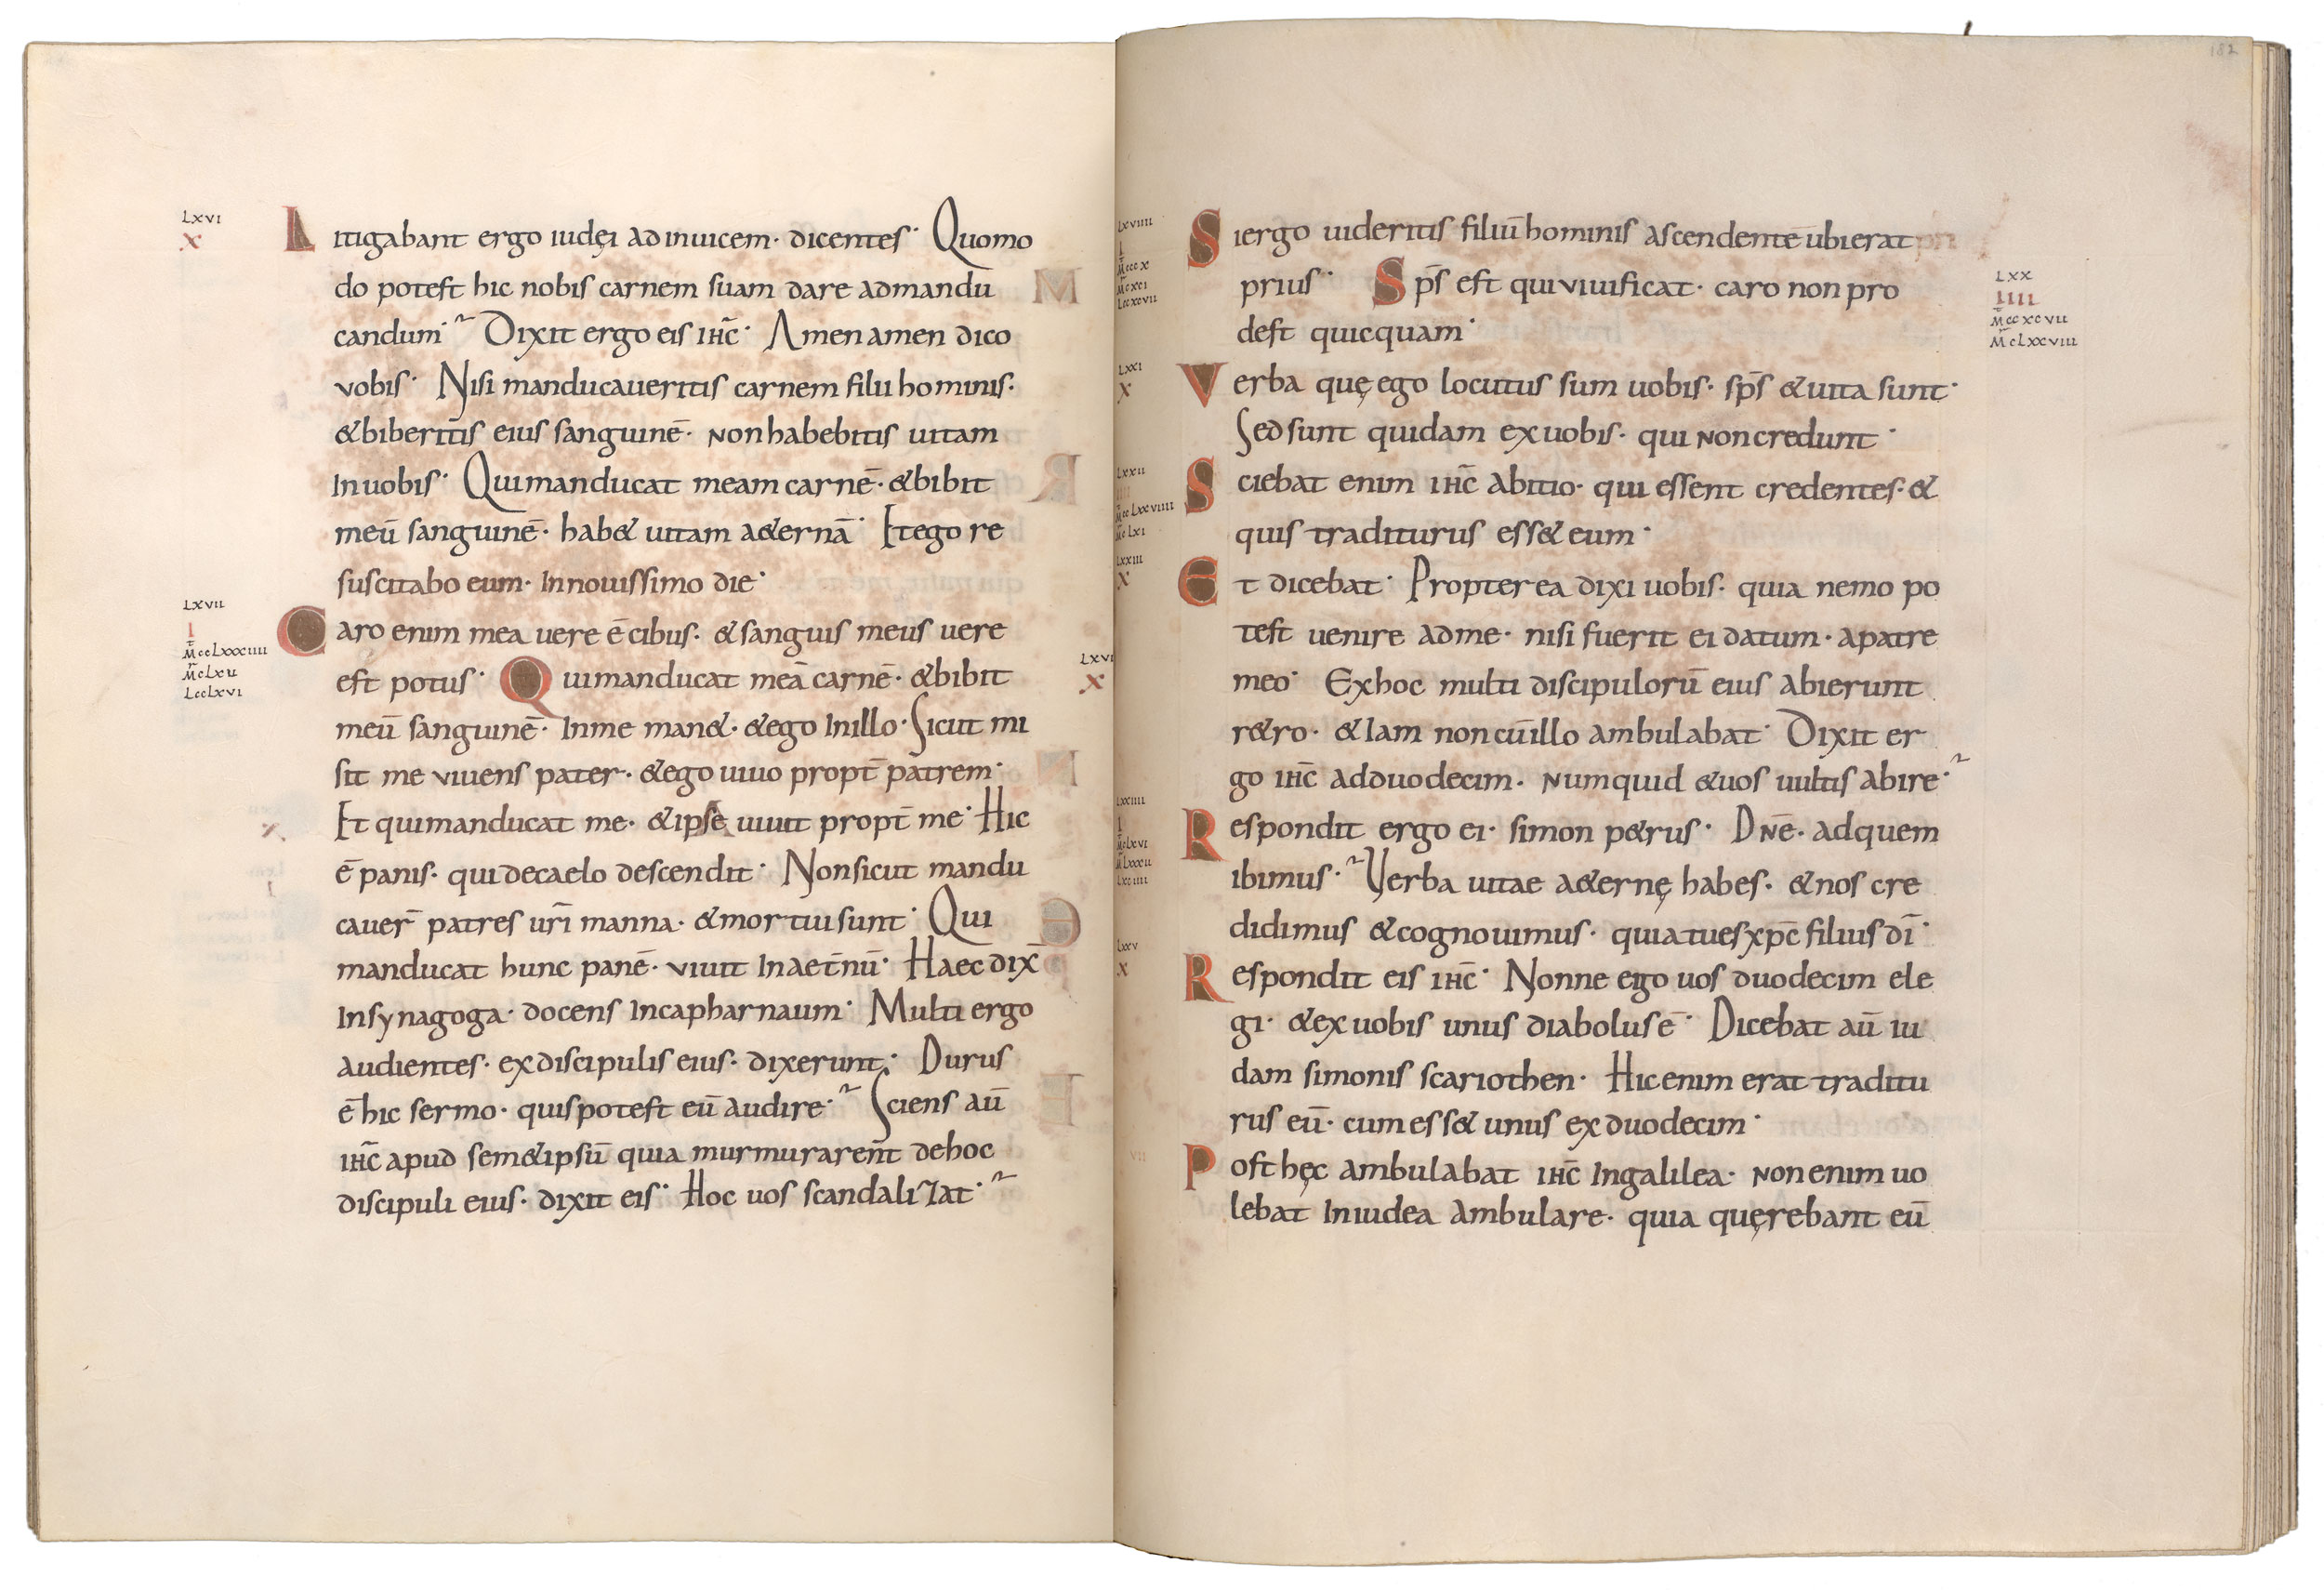 LXVI
X
Litigabant ergo iudęi adinuicem· dicentes· Quomo
do potest hic nobis carnem suam dare admandu
candum· Dixit ergo eis ihc̄· Amen amen dico
vobis· Nisi manducaueritis carnem filii hominis·
&biberitis eius sanguinē· nonhabebitis uitam
Inuobis· Quimanducat meam carnē· &bibit
meū sanguinē· hab& uitam a&ernā· Etego re
suscitabo eum· Innouissimo die·
LXVII
I
M̄ccLxxxiiii
M̄cLxii
LccLxvi
Caro enim mea uere ē cibus· &sanguis meus uere
est potus· Quimanducat meā carnē· &bibit
X
meū sanguinē· Inme man&· &ego Inillo· Sicut mi
sit me viuens pater· &ego uiuo propt̄ patrem·
Et quimanducat me· &ipse uiuit propt̄ me· Hic
ē panis· quidecaelo descendit· Nonsicut mandu
cauer̄ patres ur̄i manna· &mortuisunt· Qui
manducat hunc panē· viuit Inaet̄nū· Haec dix̄
Insynagoga· docens Incapharnaum· Multi ergo
audientes· exdiscipulis eius· dixerunt· Durus
ē hic sermo· quispotest eū audire· Sciens aū
ihc̄ apud sem&ipsū quia murmurarent̄ dehoc
discipuli eius· dixit eis· Hoc uos scandalizat·
182
LXVIIII
I
Siergo uideritis filiū hominis ascendentē ubierat
prius· Sp̄s est quiviuificat· caro non pro
dest quicquam·
LXX
IIII
M̄ccxcvii
M̄cLxxviii
LXXI
X
Verba quę ego locutus sum uobis· sp̄s &uita sunt·
Sedsunt quidam exuobis· qui noncredunt·
LXXII
Sciebat enim ihc̄ abitio· qui essent credentes· &
quis traditurus ess& eum·
LXXIII
X
Et dicebat· Propterea dixi uobis· quia nemo po
test uenire adme· nisi fuerit ei datum· apatre
meo· Exhoc multi discipulorū eius abierunt
r&ro· &Iam noncūillo ambulabat· Dixit er
go ihc̄ adduodecim· numquid &uos uultis abire·
LXXIIII
I
Respondit ergo ei· simon p&rus· Dnē· adquem
ibimus· Verba uitae a&ernę habes· &nos cre
didimus &cognouimus· quiatuesxpc̄ filius dī·
LXXV
X
Respondit eis ihc̄· Nonne ego uos duodecim ele
gi· &exuobis unus diabolus ē· Dicebat aū iu
dam simonis scariothen· Hicenim erat traditu
rus eū· cumess& unus exduodecim·
Posthęc ambulabat ihc̄ Ingalilea· nonenim uo
lebat Iniudea ambulare· quia quęrebant eū